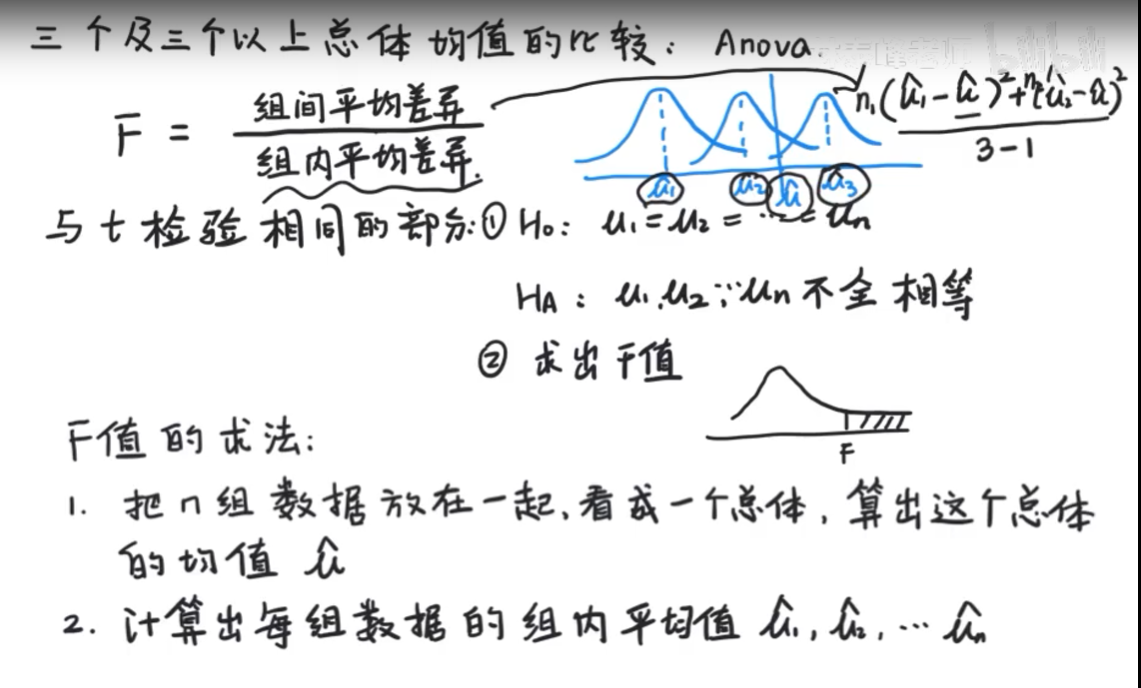 三个及三个以上总体均值的比较：Anova.
F = 组间平均差异 / 组内平均差异.
n₁(û₁-û)²+n₂(û₂-û)² / 3-1
û₁ û₂ û û₃
与t检验相同的部分：① H₀： u₁=u₂=…=un
HA： u₁.u₂…un不全相等
② 求出F值
F
F值的求法：
1. 把n组数据放在一起,看成一个总体,算出这个总体
的均值 û
2. 计算出每组数据的组内平均值 û₁, û₂, … ûn